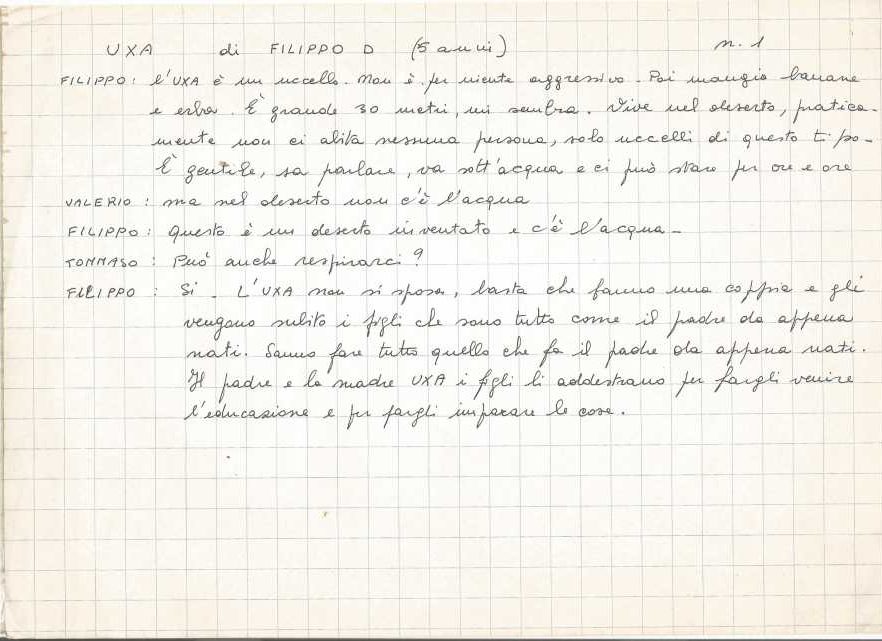 UXA di FILIPPO D (5 anni) n. 1
FILIPPO: L'UXA è un uccello. Non è per niente aggressivo. Poi mangia banane
e erba. È grande 30 metri, mi sembra. Vive nel deserto, pratica-
mente non ci abita nessuna persona, solo uccelli di questo tipo-
È gentile, sa parlare, va sott'acqua e ci può stare per ore e ore
VALERIO: ma nel deserto non c'è l'acqua
FILIPPO: Questo è un deserto inventato e c'è l'acqua-
TOMMASO: Può anche respirarci?
FILIPPO: Si. L'UXA non si sposa, basta che fanno una coppia e gli
vengono subito i figli che sono tutto come il padre da appena
nati. Sanno fare tutto quello che fa il padre da appena nati.
Il padre e la madre UXA i figli li addestrano per fargli venire
l'educazione e per fargli imparare le cose.